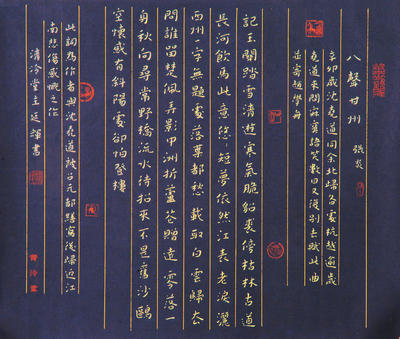 八聲甘州
張炎
辛卯歲沈堯道同余北歸各處杭越逾歲
堯道來問寂寞語笑數日又復別去賦此曲
並寄趙學舟
記玉關踏雪清遊寒氣脆貂裘傍枯林古道
長河飲馬此意悠悠短夢依然江表老淚灑
西州一字無題處落葉都愁 載取白雲歸去
問誰留楚佩弄影中洲折蘆花贈遠零落一
身秋向尋常野橋流水待招來不是舊沙鷗
空懷感有斜陽處卻怕登樓
此詞為作者與沈堯道被召元都繕寫後歸近江
南悲傷感慨之作
清泠堂主延輝書